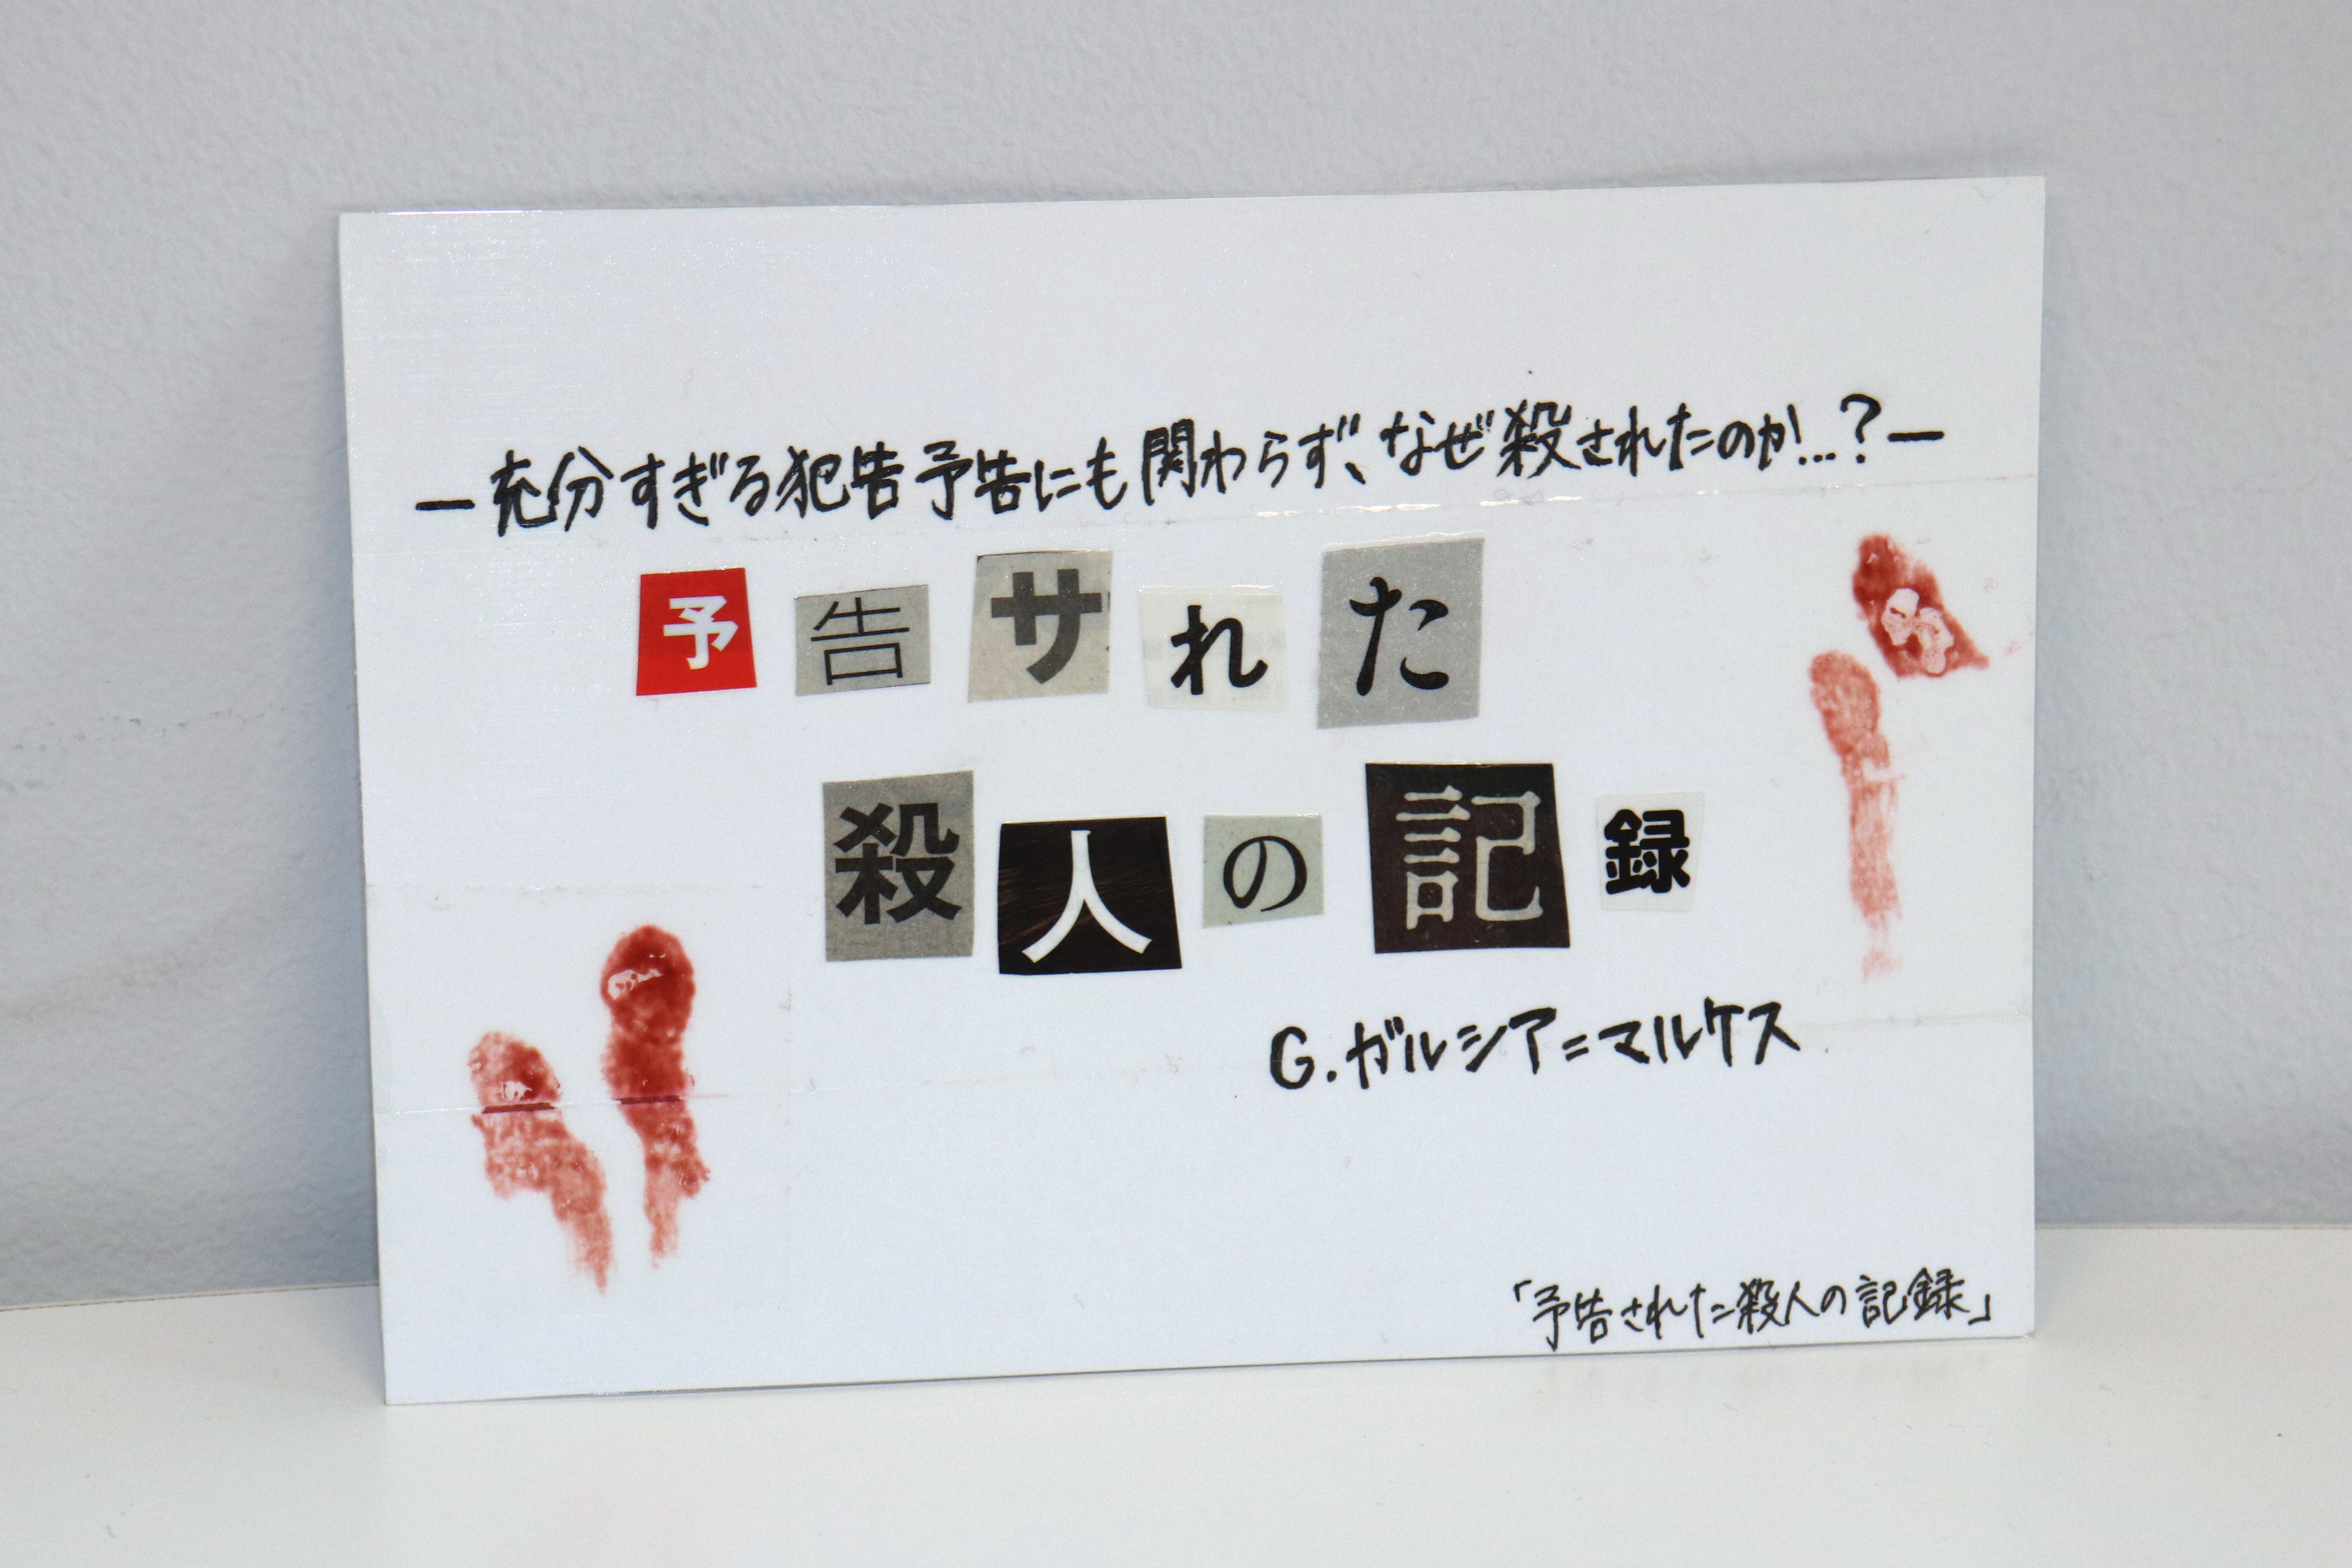 ―充分すぎる犯告予告にも関わらず、なぜ殺されたのか…?―
予告サれた
殺人の記録
G.ガルシア=マルケス
「予告された殺人の記録」